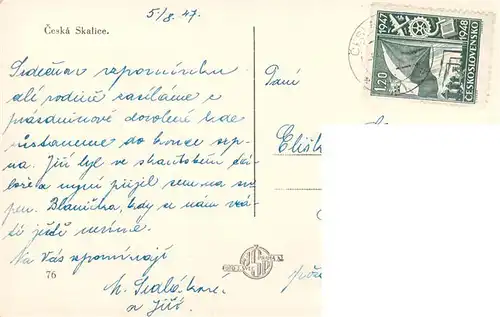 5/8. 47.
Česká Skalice.
Srdečnou vzpomínku
celé rodině zasíláme z
prázdninové dovolené kde
zůstaneme do konce srp-
na. Jiří byl ve skautském tá-
boře a nyní přijel sem na sr-
pen. Blanička, kdy se nám vrá-
tí ještě nevíme.
Na Vás vzpomínají
M. Sedláková
a Jiří.
76
Paní
Elišk
1947
1948
1.20
ČESKOSLOVENSKO